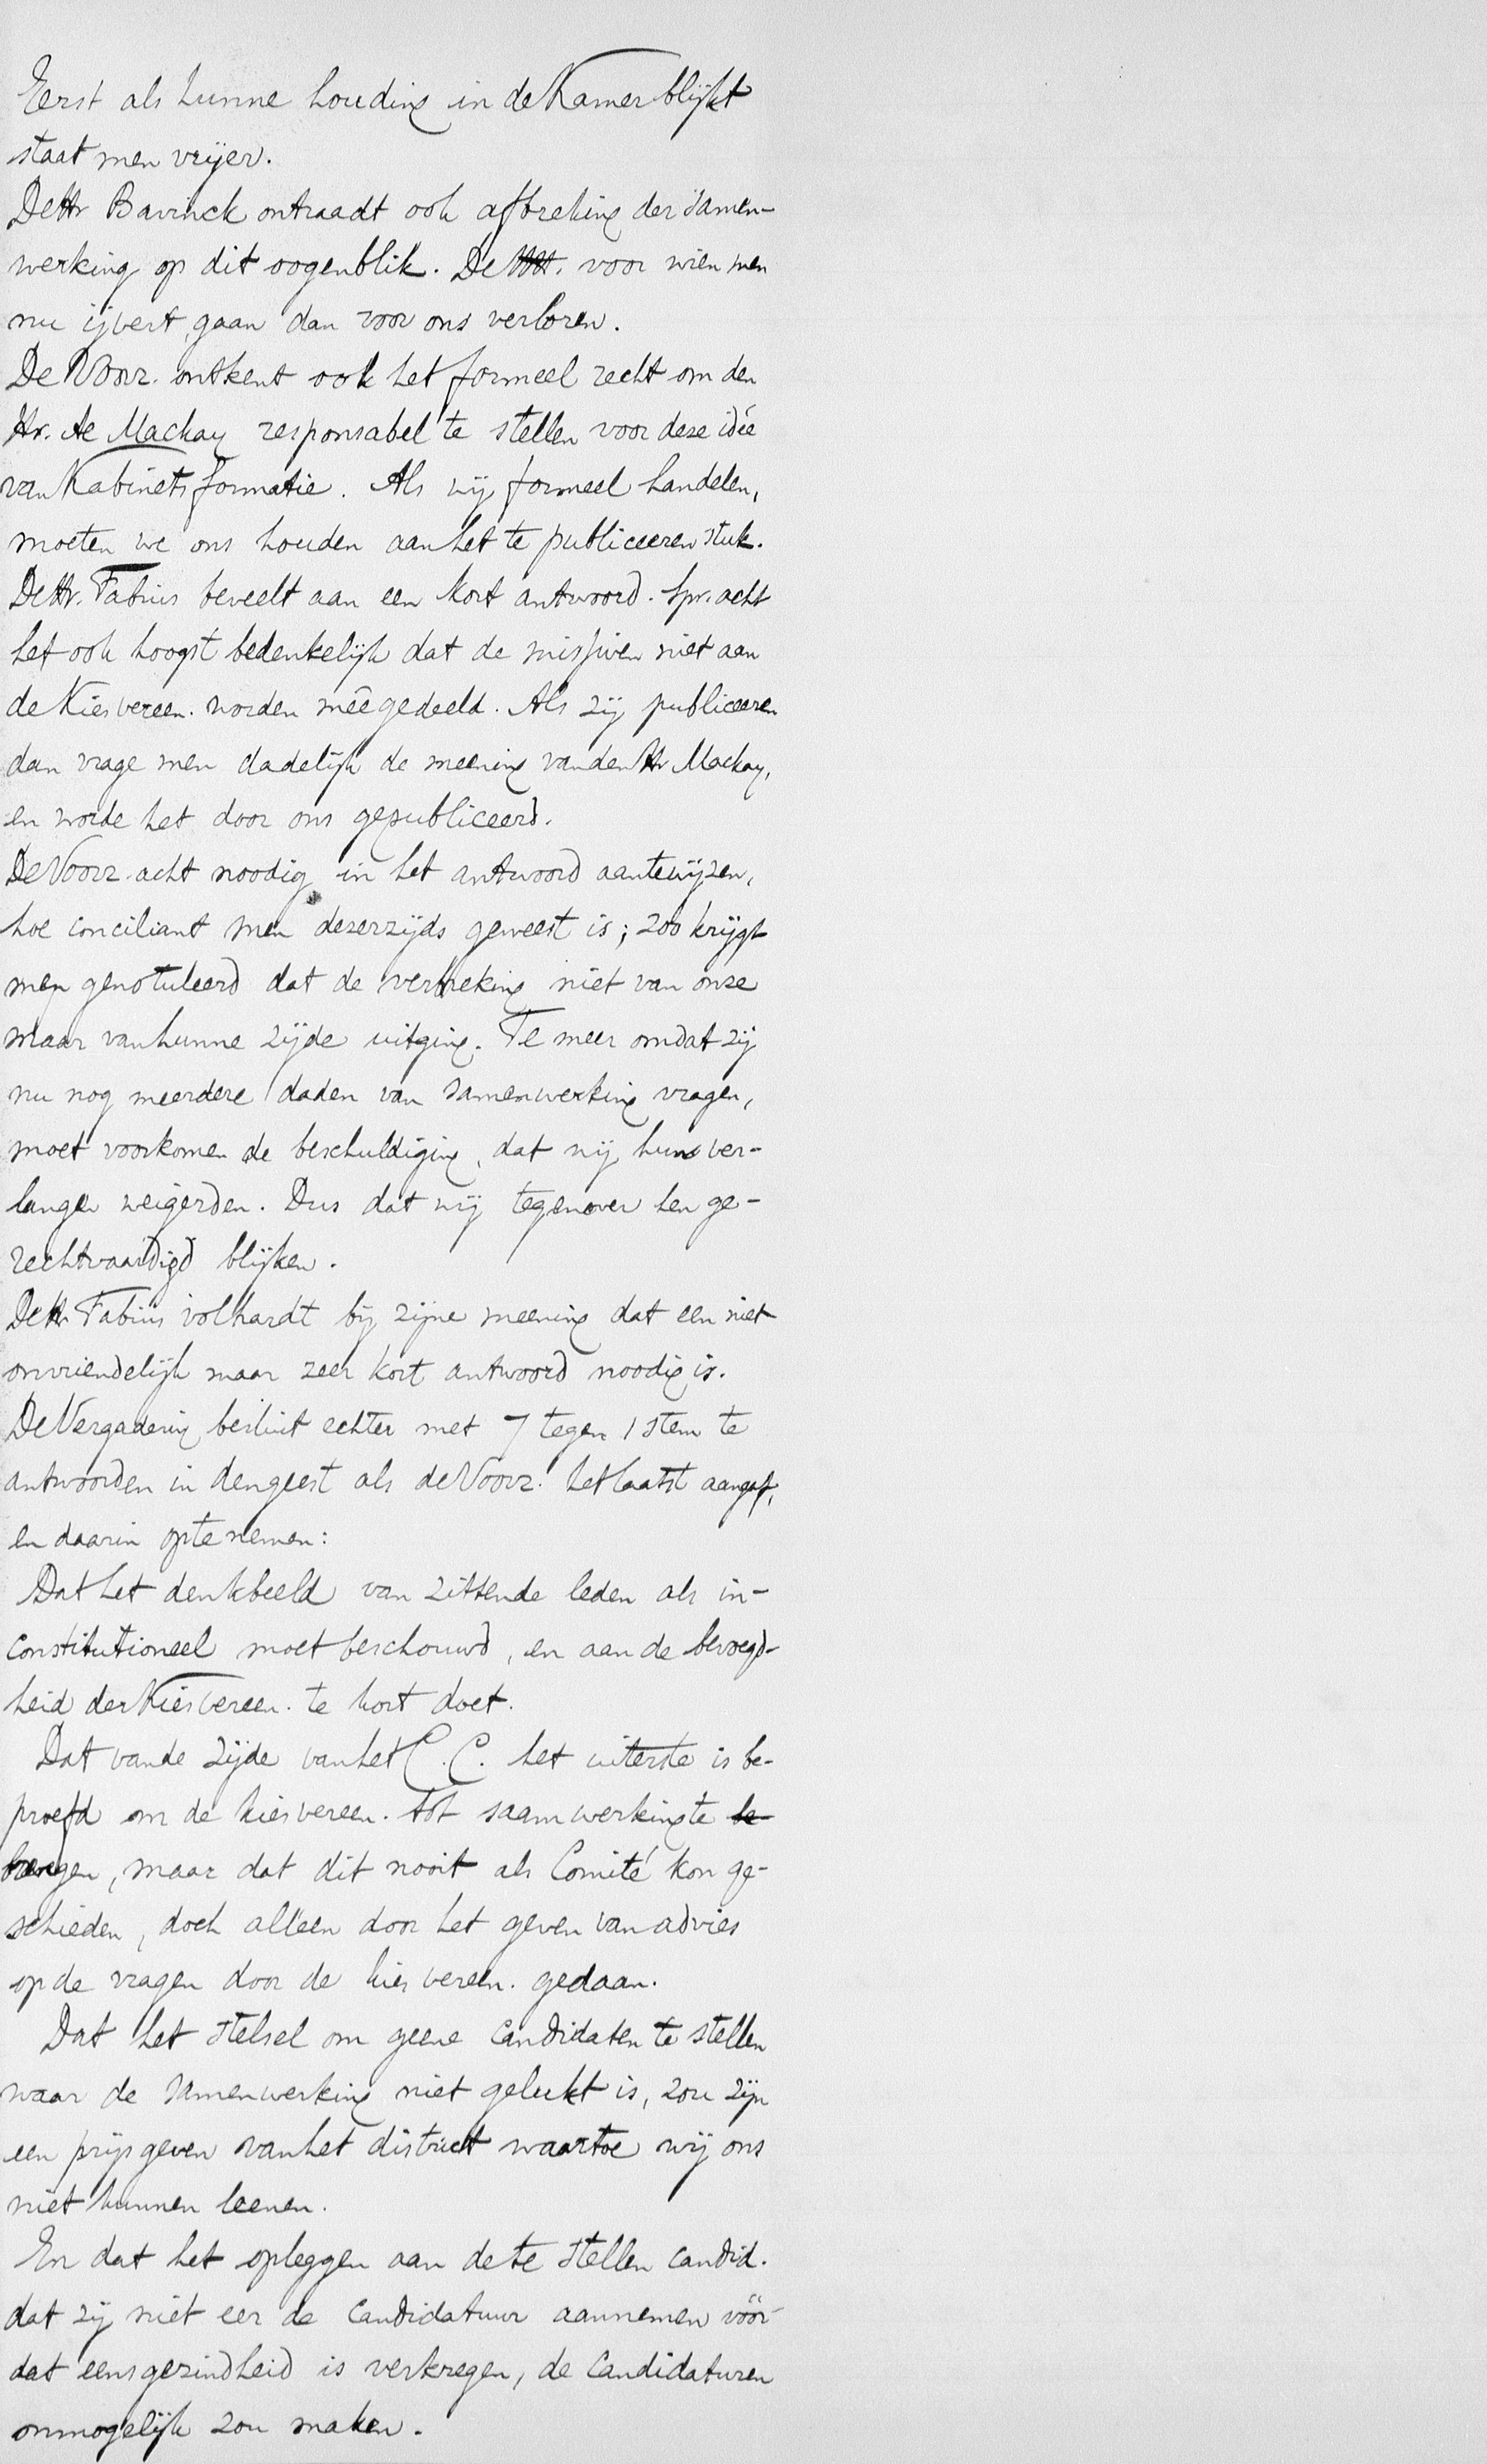 Eerst als hunne houding in de Kamer blijkt
staat men vrijer.
De Hr Bavinck ontraadt ook afbreking der samen-
werking op dit oogenblik. De HH. voor wien men
nu ijvert gaan dan voor ons verloren.
De Voorz. ontkent ook het formeel recht om den
Hr. Ae Mackay responsabel te stellen voor deze idée
van Kabinetsformatie. Als wij formeel handelen,
moeten we ons houden aan het te publiceeren stuk.
De Hr. Fabius beveelt aan een kort antwoord. Spr. acht
het ook hoogst bedenkelijk dat de missiven niet aan
de Kiesvereen. worden meêgedeeld. Als zij publiceeren
dan vrage men dadelijk de meening van den Hr Mackay,
en worde het door ons gepubliceerd.
De Voorz. acht noodig in het antwoord aantewijzen,
hoe conciliant men dezerzijds geweest is; zoo krijgt
men genotuleerd dat de verbreking niet van onze
maar van hunne zijde uitging. Te meer omdat zij
nu nog meerdere daden van samenwerking vragen,
moet voorkomen de beschuldiging, dat wij huns ver-
langen weigerden. Dus dat wij tegenover hen ge-
rechtvaardigd blijken.
De Hr. Fabius volhardt bij zijne meening dat een niet
onvriendelijk maar zeer kort antwoord noodig is.
De Vergadering besluit echter met 7 tegen 1 stem te
antwoorden in den geest als de Voorz. het laatst aangaf,
en daarin opte nemen:
Dat het denkbeeld van zittende leden als in-
constitutioneel moet beschouwd, en aan de bevoegd-
heid der Kiesvereen. te kort doet.
Dat van de zijde van het C.C. het uiterste is be-
proefd om de kiesvereen. tot saamwerking te be
brengen, maar dat dit nooit als Comité kon ge-
schieden, doch alleen door het geven van advies
op de vragen door de kiesvereen. gedaan.
Dat het stelsel om geene candidaten te stellen
waar de samenwerking niet gelukt is, zou zijn
een prijsgeven van het district waartoe wij ons
niet kunnen leenen.
En dat het opleggen aan de te stellen candid.
dat zij niet eer de candidatuur aannemen vóór-
dat eensgezindheid is verkregen, de candidaturen
onmogelijk zou maken.